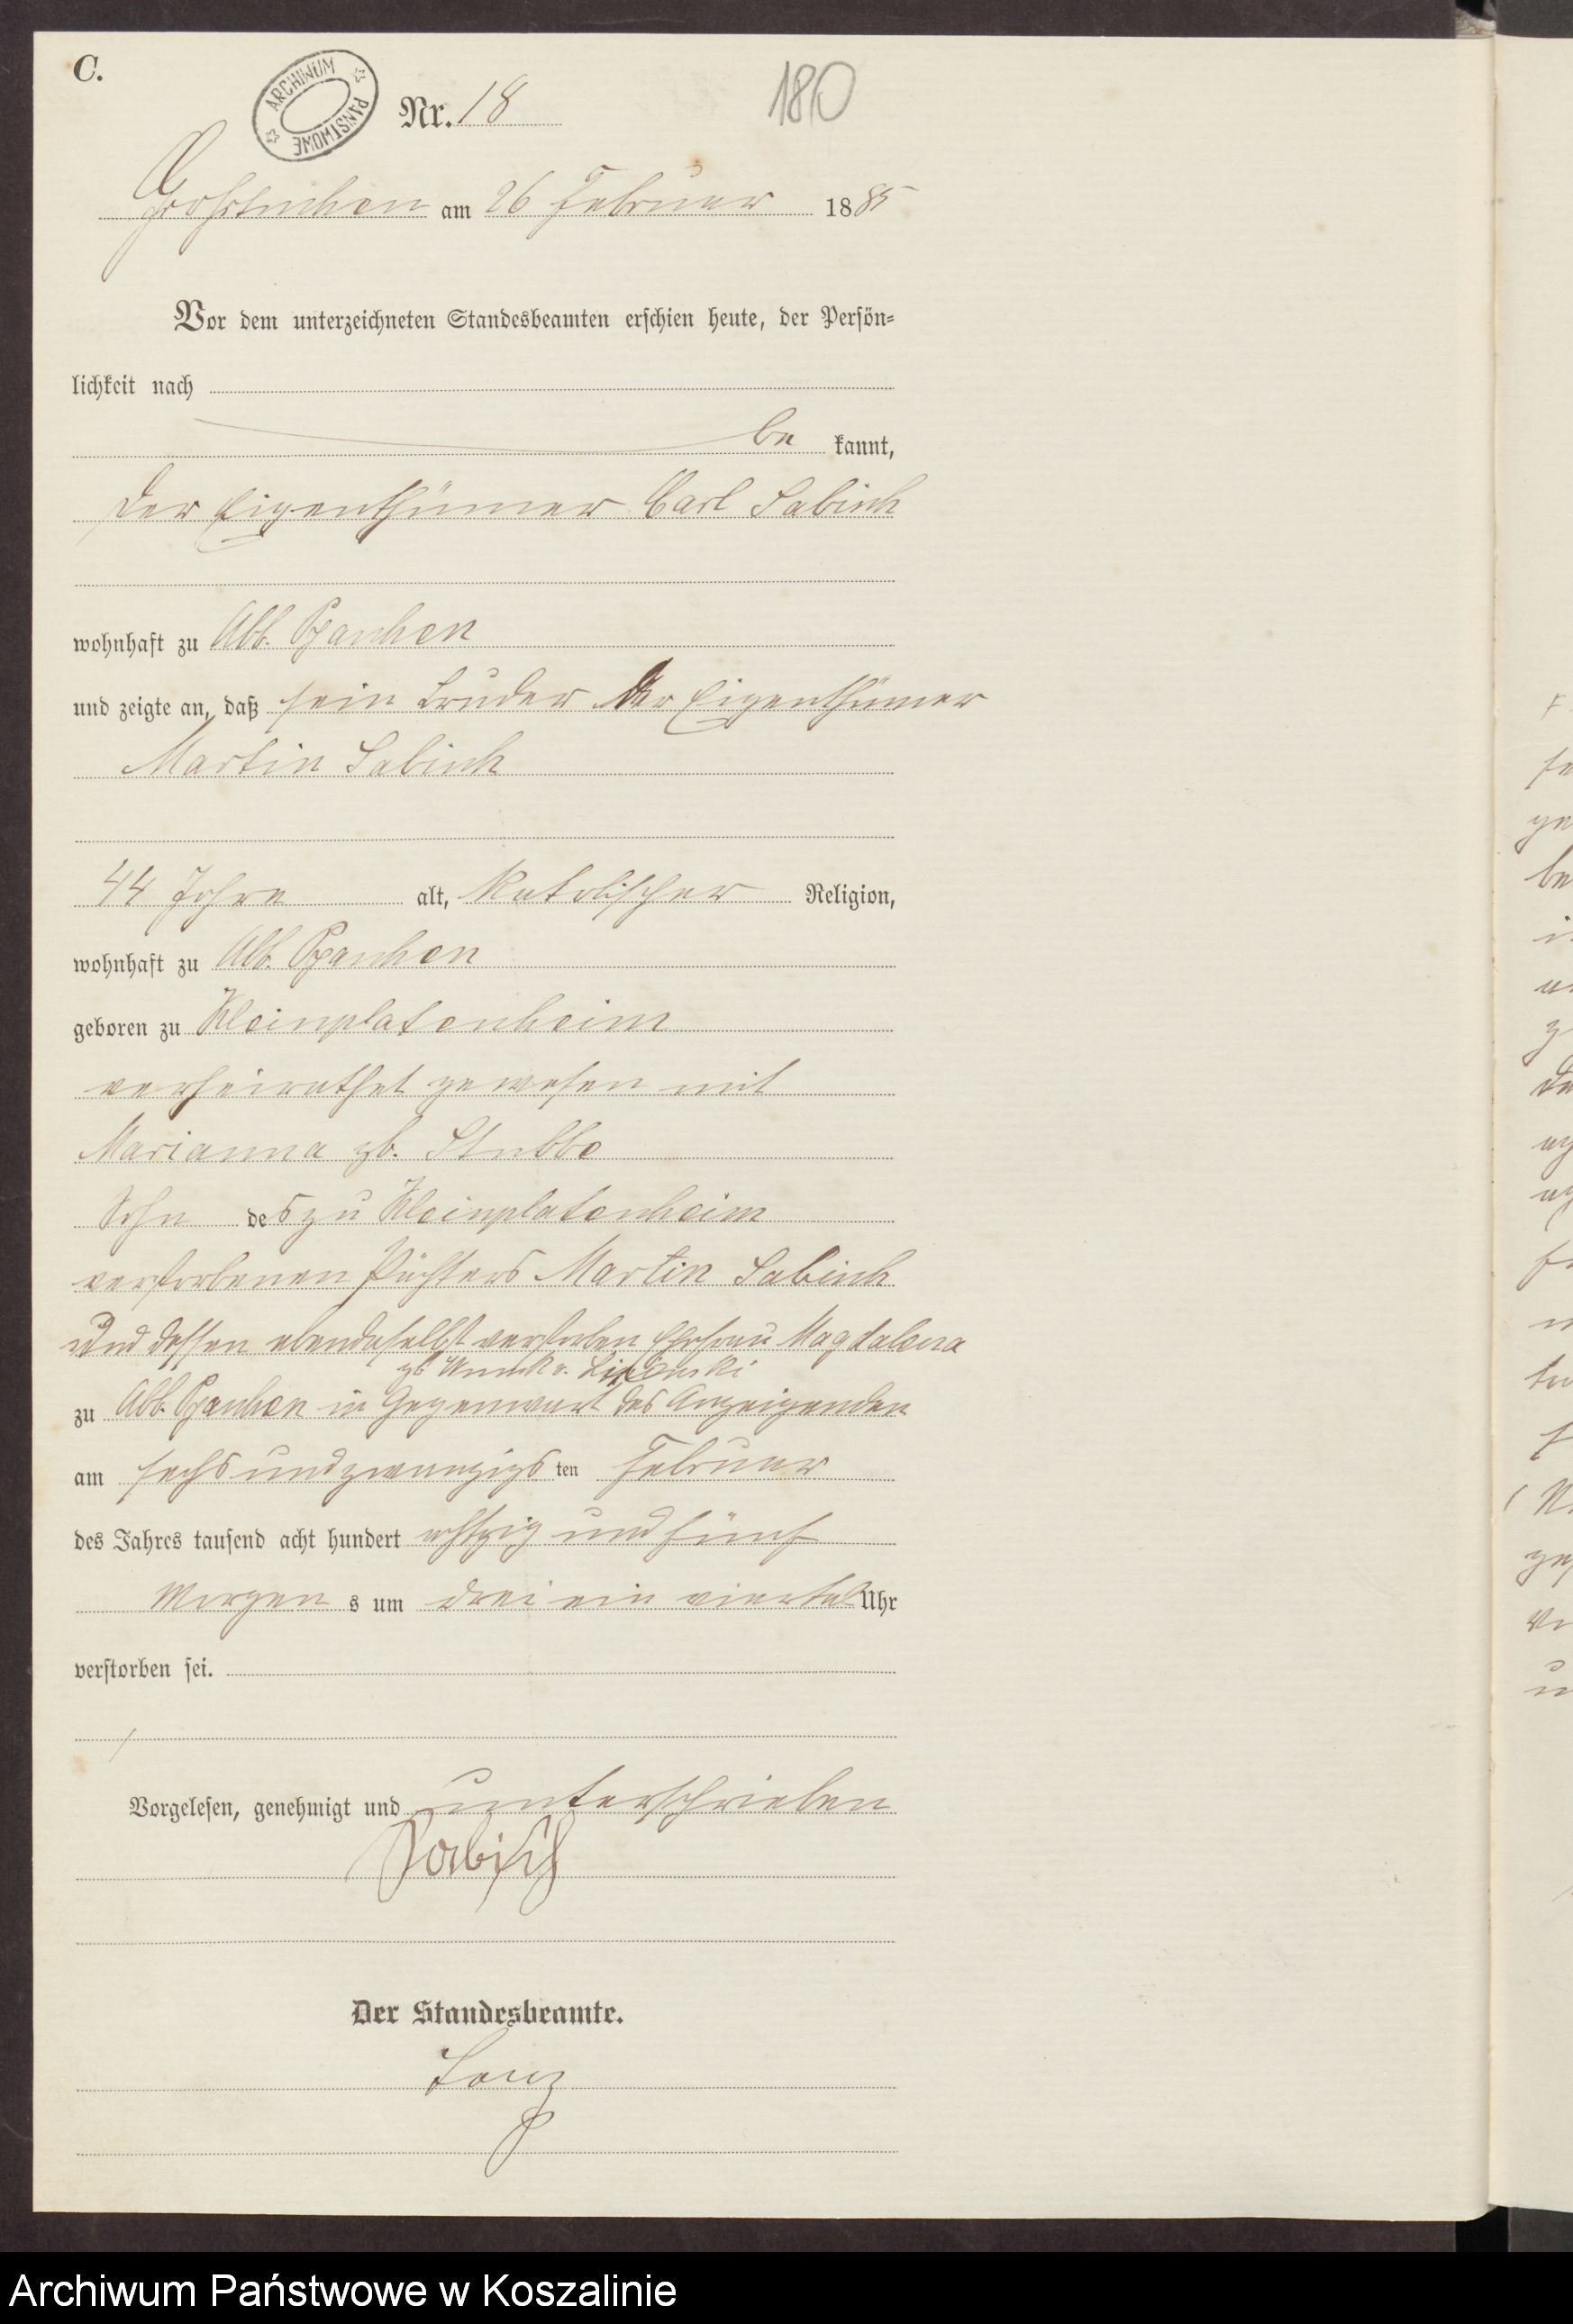 C.
ARCHIWUM PAŃSTWOWE
Nr. 18
180
Großtuchen am 26 Februar 1885
Vor dem unterzeichneten Standesbeamten erschien heute, der Persön-
lichkeit nach
be kannt,
der Eigenthümer Carl Sabisch
wohnhaft zu Abb.
und zeigte an, daß sein Bruder der Eigenthümer
Martin Sabisch
44 Jahre alt, katolischer Religion,
wohnhaft zu Abb.
geboren zu Kleinplatenheim
verheirathet gewesen mit
Marianna gb. Stubbe
Sohn des zu Kleinplatenheim
verstorbenen Pächters Martin Sabisch
und dessen ebendaselbst verstorben Ehefrau Magdalena
gb v.
zu Abb. in Gegenwart des Anzeigenden
am sechs und zwanzigs ten Februar
des Jahres tausend acht hundert achtzig und fünf
Morgen s um drei ein viertel Uhr
verstorben sei.
Vorgelesen, genehmigt und unterschrieben
Sabisch
Der Standesbeamte.
Archiwum Państwowe w Koszalinie